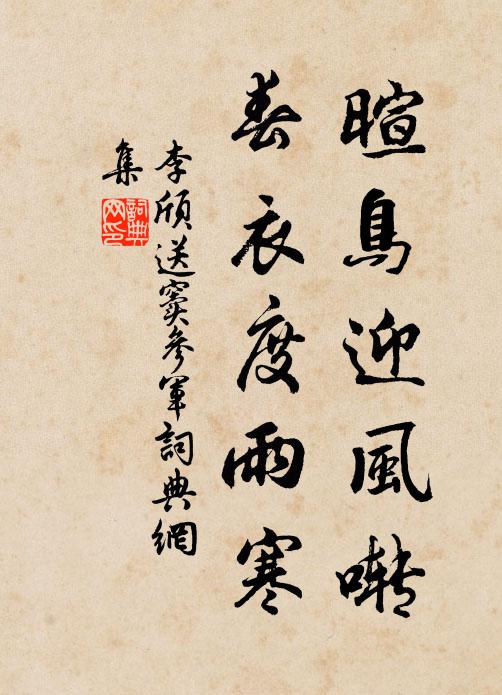 暄鳥迎風囀
春衣度雨寒
李頎送竇參軍詞典網
集
詞典
网印